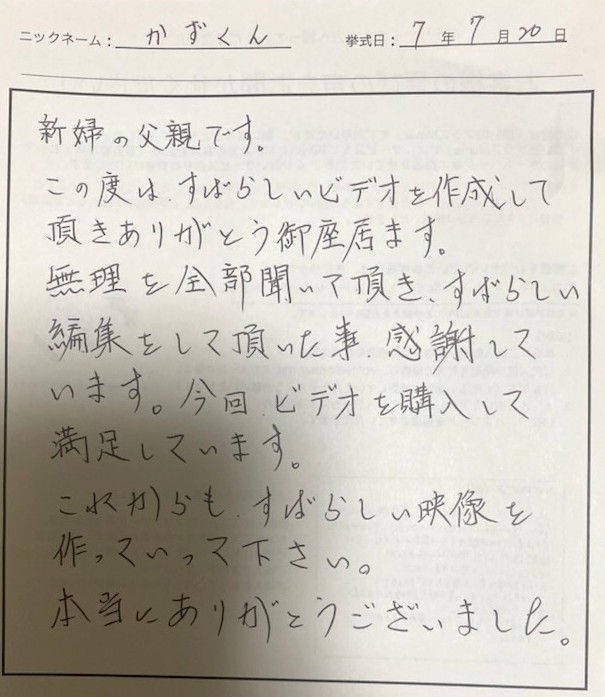 ニックネーム：かずくん 挙式日：7年7月20日
新婦の父親です。
この度は、すばらしいビデオを作成して
頂きありがとう御座居ます。
無理を全部聞いて頂き、すばらしい
編集をして頂いた事 感謝して
います。今回、ビデオを購入して
満足しています。
これからも、すばらしい映像を
作っていって下さい。
本当にありがとうございました。